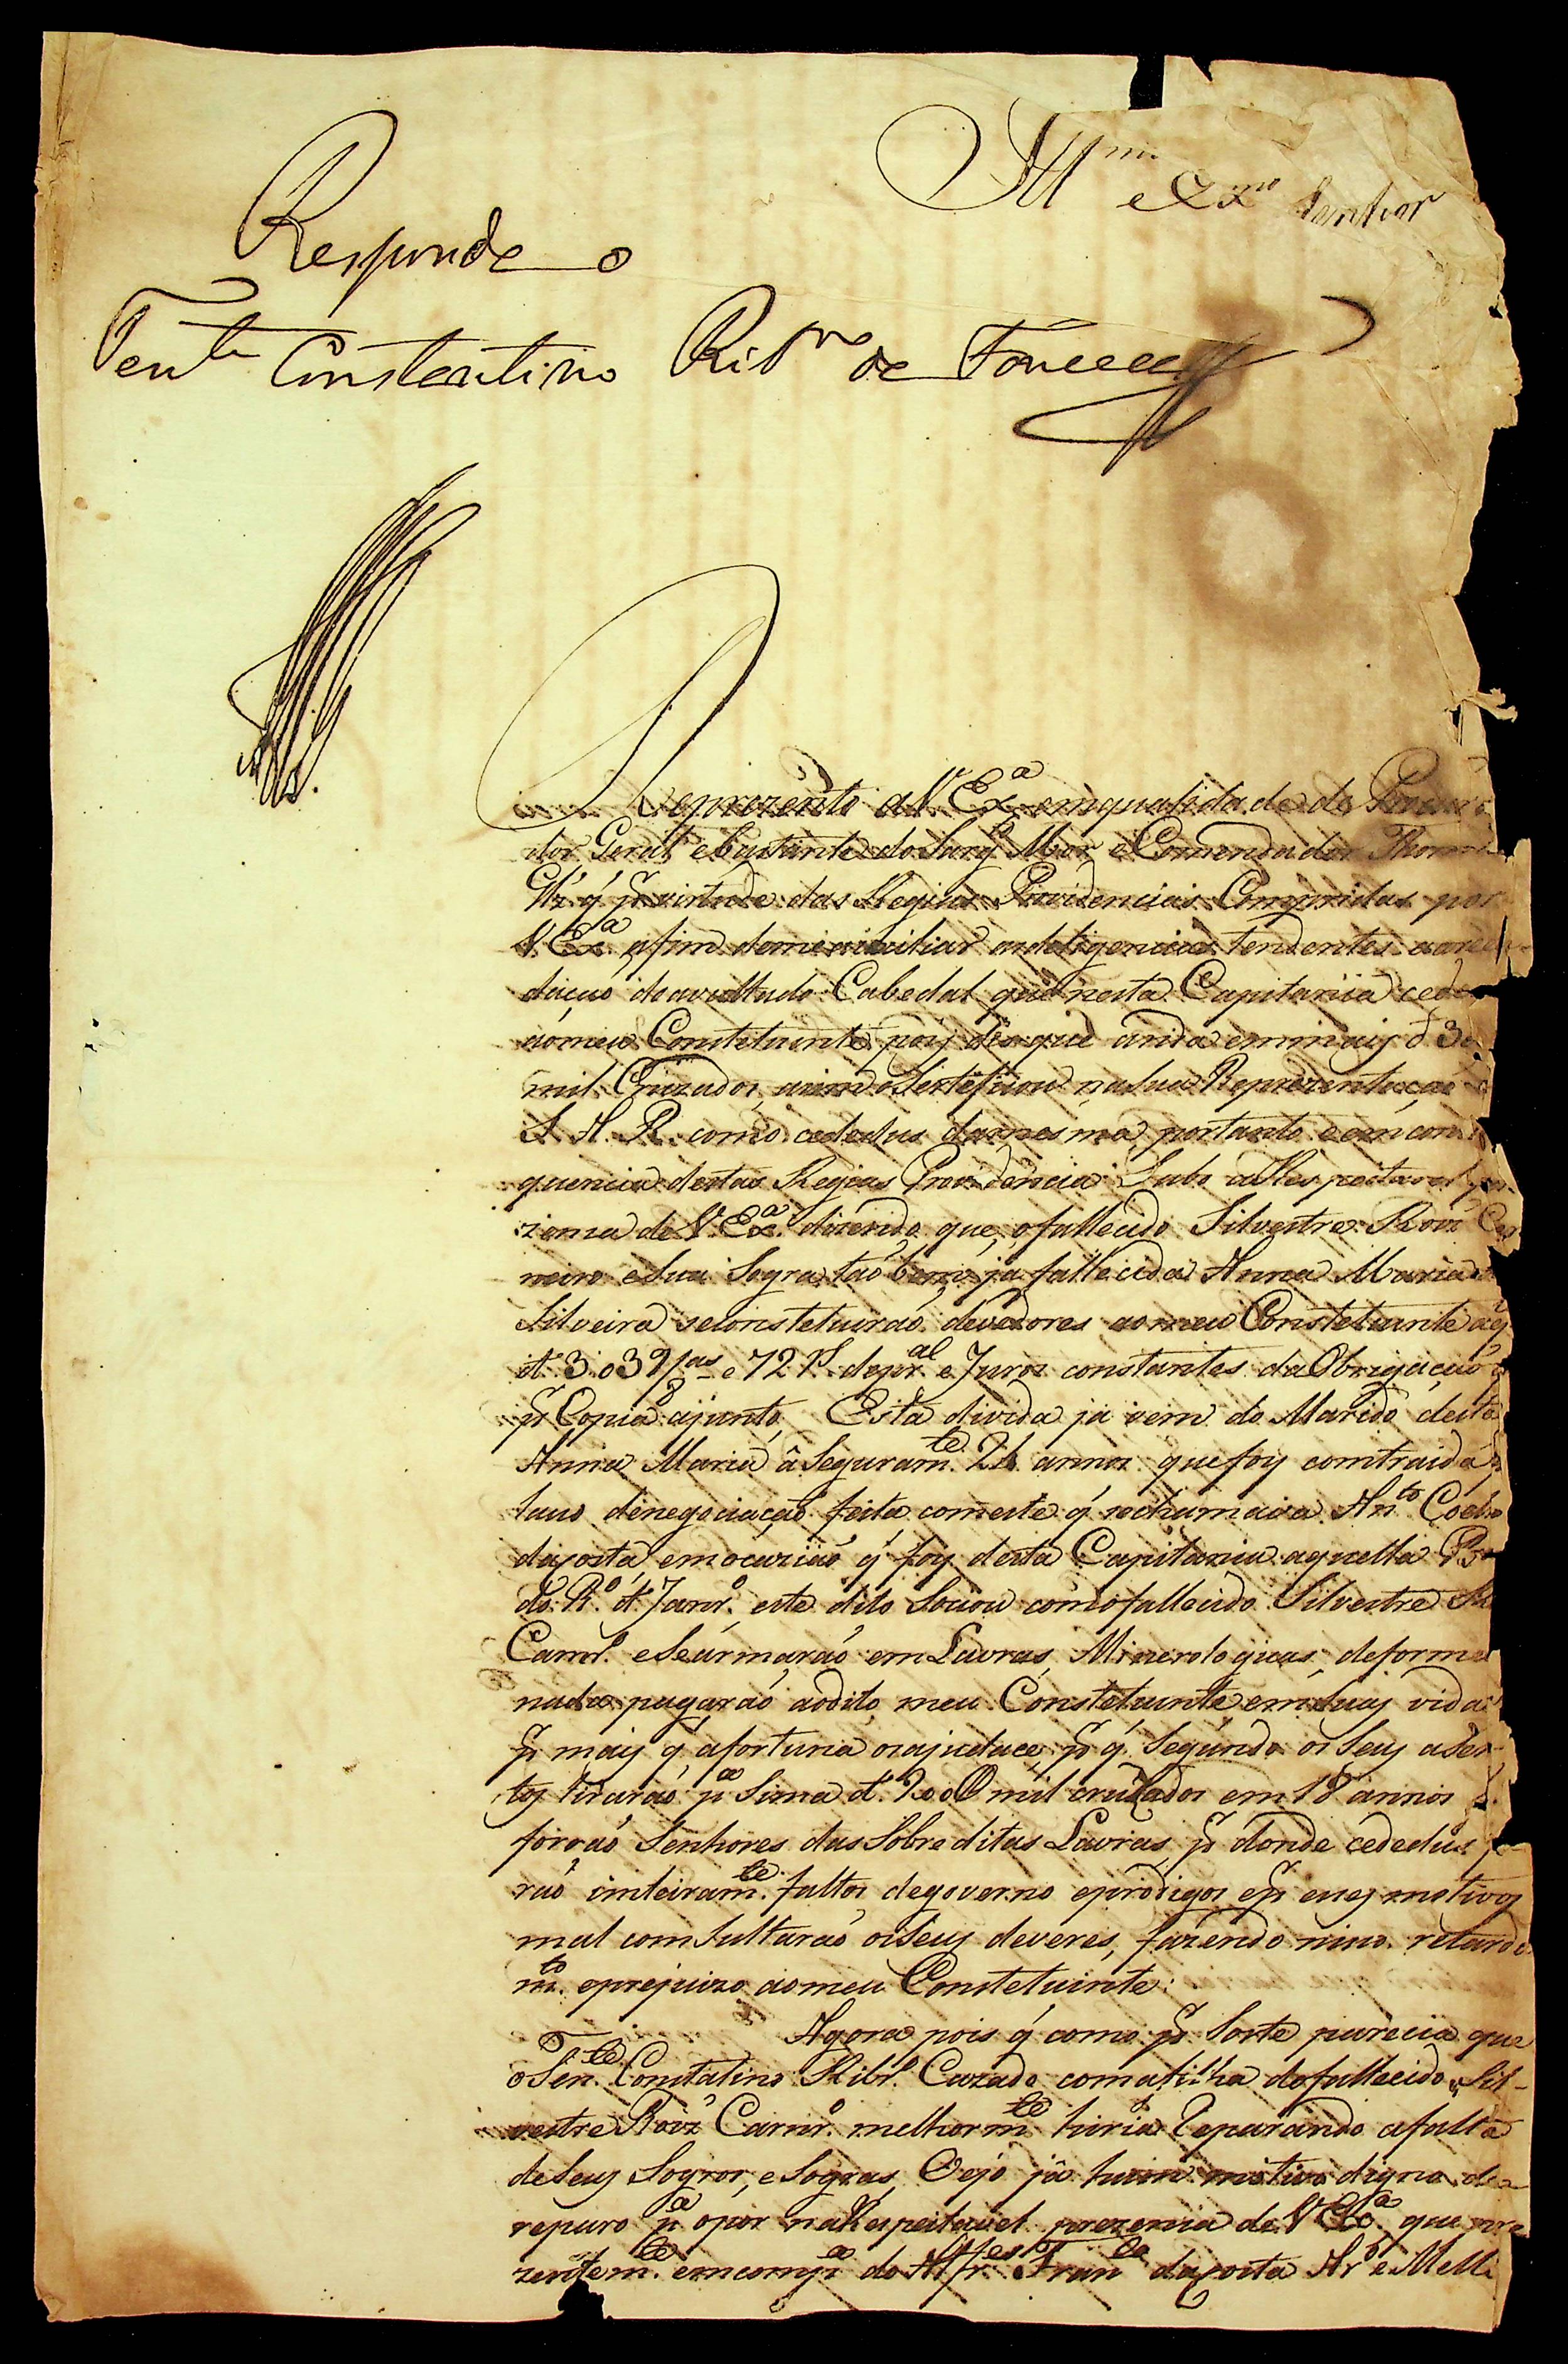 Illm. e Exmo Senhor
Responde o
Tente Constantino Ribro de
Reprezento a V. Exa. em qualidade de Procura
dor Geral e bastante do Sarg. Mor e Comendador Thomé
q' pr virtude das Regias Providencias Compridas por
V. Exa. afim de me auxiliar as deligencias tendentes a arrec
dação do avultado Cabedal que nesta Capitania cedeo
ao meu Constetuinte, pois diz que anda em mais d' 30
mil Cruzados, asim o Serteficou na sua Reprezentação a
S. A. R. como cededus da mesma, portanto e em conse
quencia destas Regias Providencia: Sabe a Respeitavel pre
zensa de V. Exa. dizendo que, o fallecido Silvestre Roiz' Car
neiro e sua Sogra tão bem já fallecida Anna Maria da
Silveira se constetuirão devedores ao meu Constetuinte da q
d' 3.039/as e 72 rs. de pral. e Juros constantes da Obrigação q'
pr Copia ajunto, Esta divida já vem do Marido desta
Anna Maria â Seguramte. 24 annos que foy comtraida
laus de negociação feita com este q' se chamava Anto Coelho
da costa em ocazião q' foy desta Capitania aquella
do Ro. d' Janro. este dito Sociou com o fallecido Silvestre
Carnro. e Se armarão em Lavras Minerologicas de forma
nada pagarão ao dito meu Constetuinte em suas vidas
pr mais q' a fortuna os ajudace, pr q' Segundo os Seus aser
tos tirarão pa Sima d' 200 mil cruzados em 18 annos q.
forão Senhores das Sobreditas Lavras, pr donde cededus fo
rão inteiramte. faltos de governo e prodigos e pr eses motivos
mal comsultarão os Seus deveres, fazendo niso retarda
mto. e prejuizo ao meu Constetuinte:
Agora pois q' como pr Sorte parecia que
o Tente. Constatino Ribro. Cazado com a filha do fallecido Sil-
vestre Roiz' Carnro. melhormte. hiria Reparando a falta
de Seus Sogros, e Sogras, Vejo já hum motivo digno de
reparo pa opor na Respeitavel prezensa de V. Exa. que pre
zentemte. em compa do Alfres Franco da costa